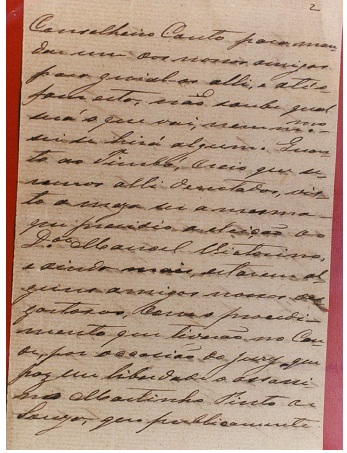 2
Conselheiro Couto para man-
dar um dos nossos amigos
para guial-os alli, e até
para isto, não soube qual
será o que vai, nem mes-
mo se hirá algum. Quan-
to ao Pinhú, creio que se-
remos alli derrotados, vis-
to a meza ser a mesma
que presidio a eleição do
Dor Manoel Victorino,
e ainda mais, estarem al-
guns amigos nossos des-
gostosos, pelo procedi-
mento que tiverão no Con-
de, por occasião do jury, que
poz em liberdade o assassi-
no Martinho Pinto de
Souza, que publicamente